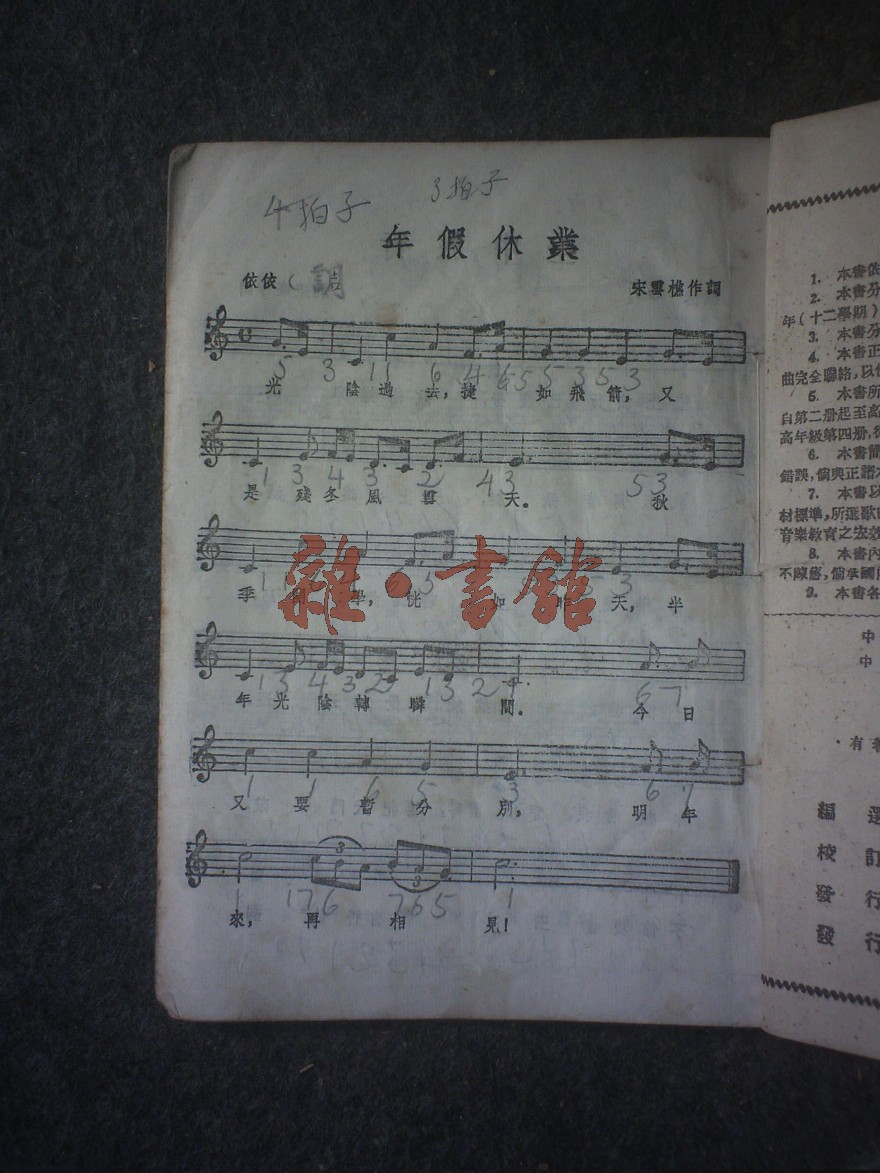 4拍子 3拍子
年假休業
依依 調 宋雲樵作詞
5 3 1 1 6 4 6 5 5 3 5 3
光 陰 過 去, 捷 如 飛 箭, 又
1 3 4 3 2 4 3 5 3
是 殘 冬 風 雪 天。 秋
季 學, 恍 如 昨 天, 半
1 3 4 3 2 1 3 2 1 6 7
年 光 陰 轉 瞬 間。 今 日
1 1 6 5 3 6 7
又 要 暫 分 別, 明 年
3
3
1 1 7 6 7 6 5 1
來, 再 相 見!
雜·書館
1. 本書依
2. 本書分
年(十二學期)
3. 本書分
4. 本書正
曲完全聯絡,以
5. 本書所
自第二册起至高
高年級第四册,
6. 本書簡
錯誤,倘與正譜
7. 本書以
材標準,所選歌
育樂教育之宏效
8. 本書內
不陳舊,倘承國
9. 本書各
中
中
有
編 選
校 訂
發 行
發 行